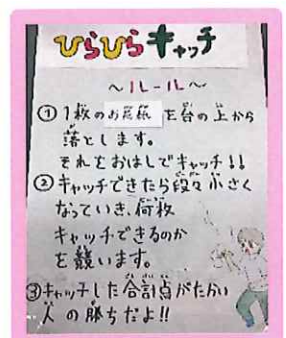 ひらひらキャッチ
～ルール～
① 1枚のお花紙を台の上から
落とします。
それをおはしでキャッチ!!
② キャッチできたら段々小さく
なっていき、何枚
キャッチできるのか
を競います。
③キャッチした合計点がたかい
人の勝ちだよ!!